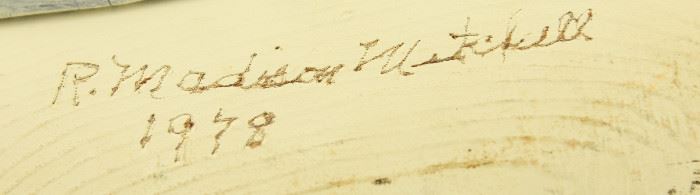 R. Madison Mitchell
1978